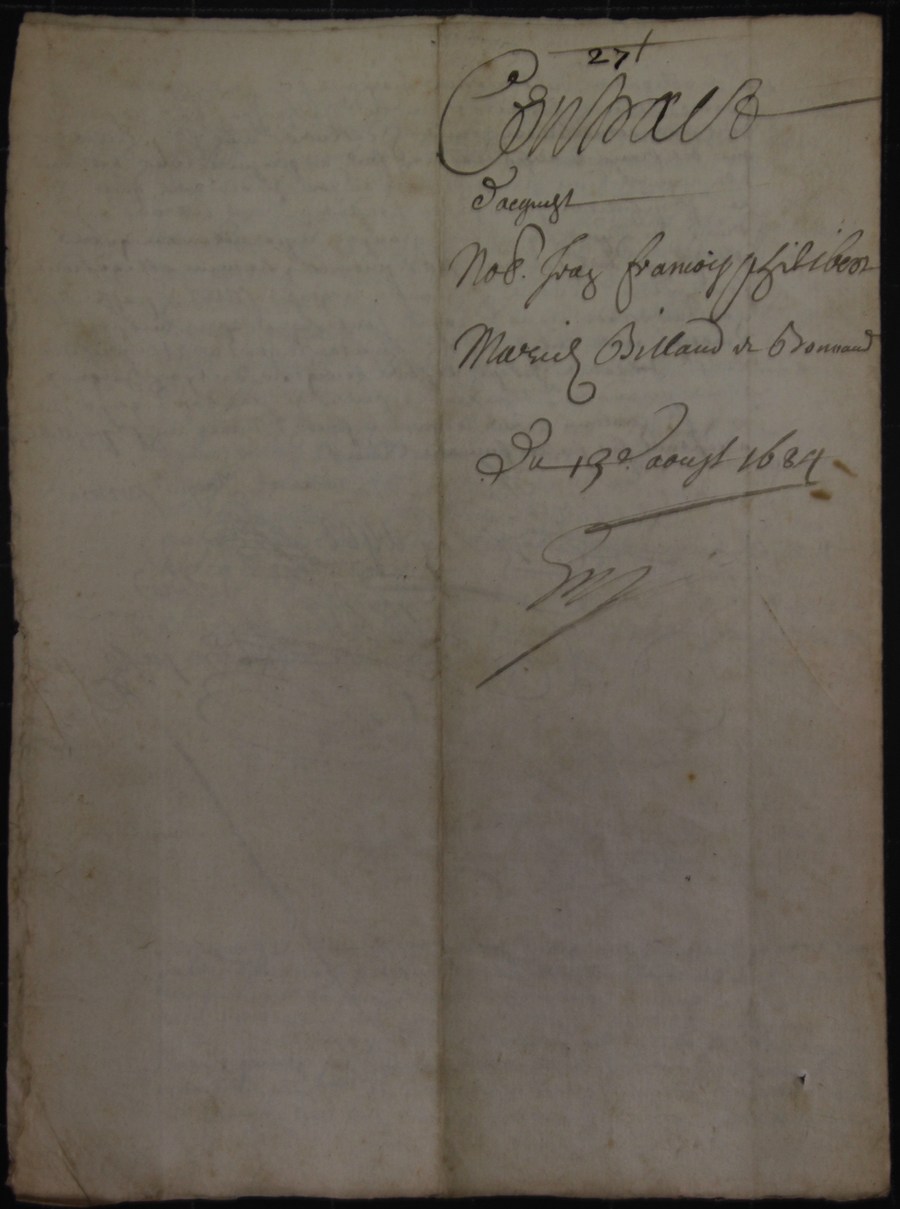 27
Contract
d'acquist
Nob. françois philibert
Mareil Billaud de Bonnaud
Du 13e aoust 1684